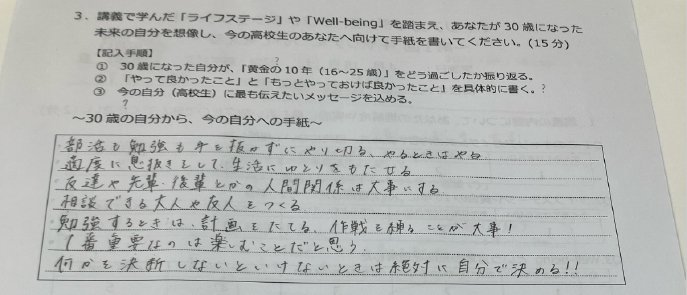 3.講義で学んだ「ライフステージ」や「Well-being」を踏まえ、あなたが30歳になった
未来の自分を想像し、今の高校生のあなたへ向けて手紙を書いてください。(15分)
【記入手順】
① 30歳になった自分が、「黄金の10年(16~25歳)」をどう過ごしたか振り返る。
② 「やって良かったこと」と「もっとやっておけば良かったこと」を具体的に書く。?
③ 今の自分(高校生)に最も伝えたいメッセージを込める。
?
~30歳の自分から、今の自分への手紙~
・部活も勉強も手を抜かずにやり切る、やるときはやる
・適度に息抜きをして、生活にゆとりをもたせる
・友達や先輩・後輩とかの人間関係は大事にする
・相談できる大人や友人をつくる
・勉強するときは、計画をたてる、作戦を練ることが大事!
・1番重要なのは楽しむことだと思う。
・何かを決断しないといけないときは絶対に自分で決める!!